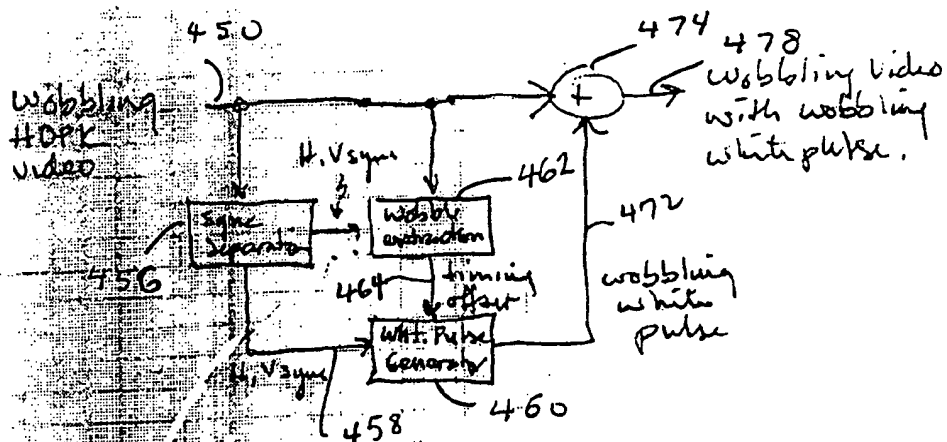 450
474
478
wobbling
HDPK
video
+
wobbling video
with wobbling
white pulse.
H, V sync
462
Sync
Separator
wobble
extraction
472
456
464
timing
offset
wobbling
white
pulse
Wht. Pulse
Generator
H, V sync
460
458